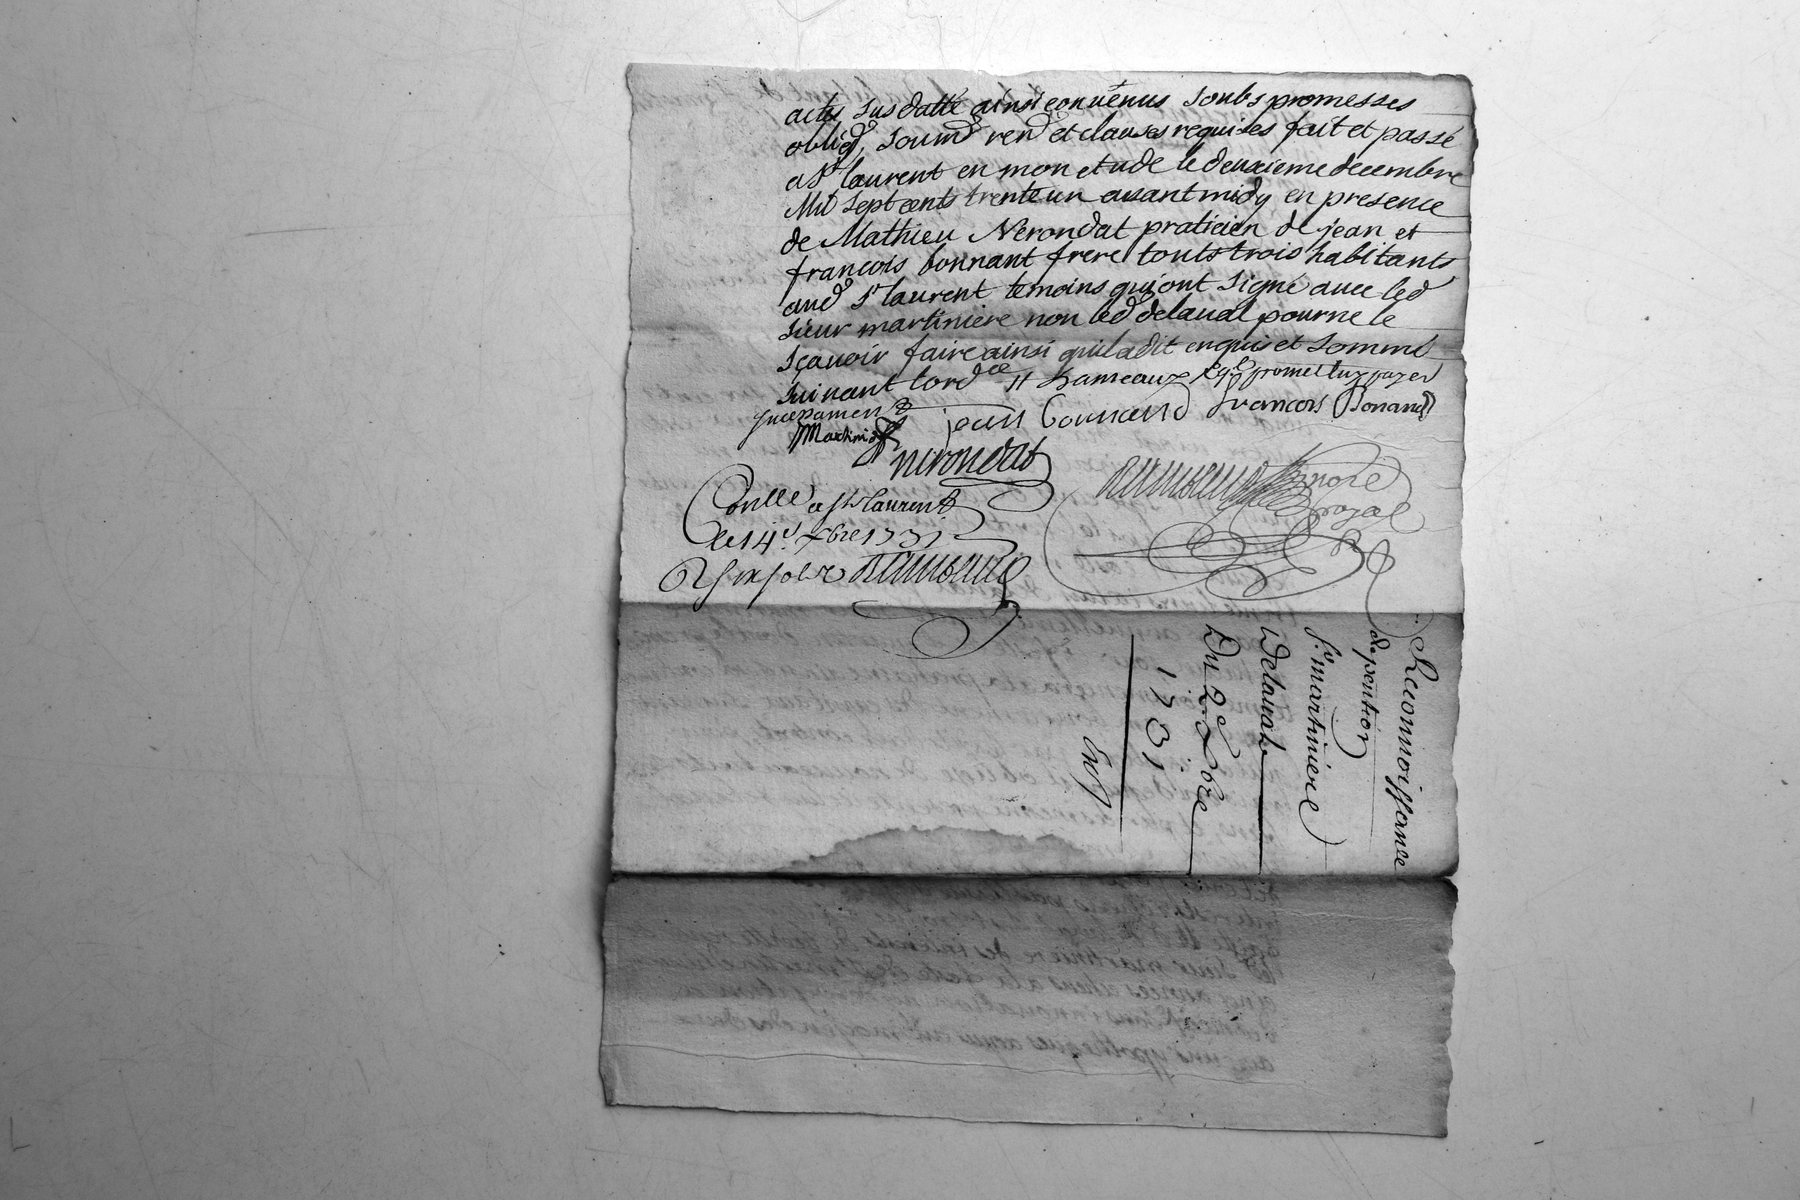 actes susdatté ainsi convenus soubs promesses
obligõ, soumõ renõ et clauses requises fait et passé
a St laurent en mon etude le deuxieme decembre
Mil sept cents trente un avant midy en presence
de Mathieu Nerondat praticien de jean et
francois bonnant frere touts trois habitants
aud St laurent temoins qui ont signé avec led
sieur martiniere non led delaval pour ne le
sçavoir faire ainsi quil a dit enquis et sommé
suivant lordce
promet
payer
Martini
jean Bonnand francois Bonand
nerondat
Conllé a St laurent
le 14e xbre 1731
Rambaud
Rambaud nore
royal
Reconnoissance
de pention
Sr martiniere
Delaval
Du 2e xbre
1731